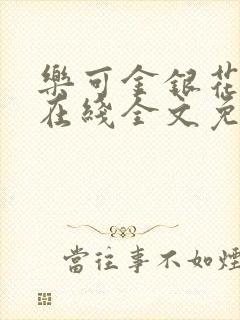 樂可金銀花
在綫全文免
當往事不如煙